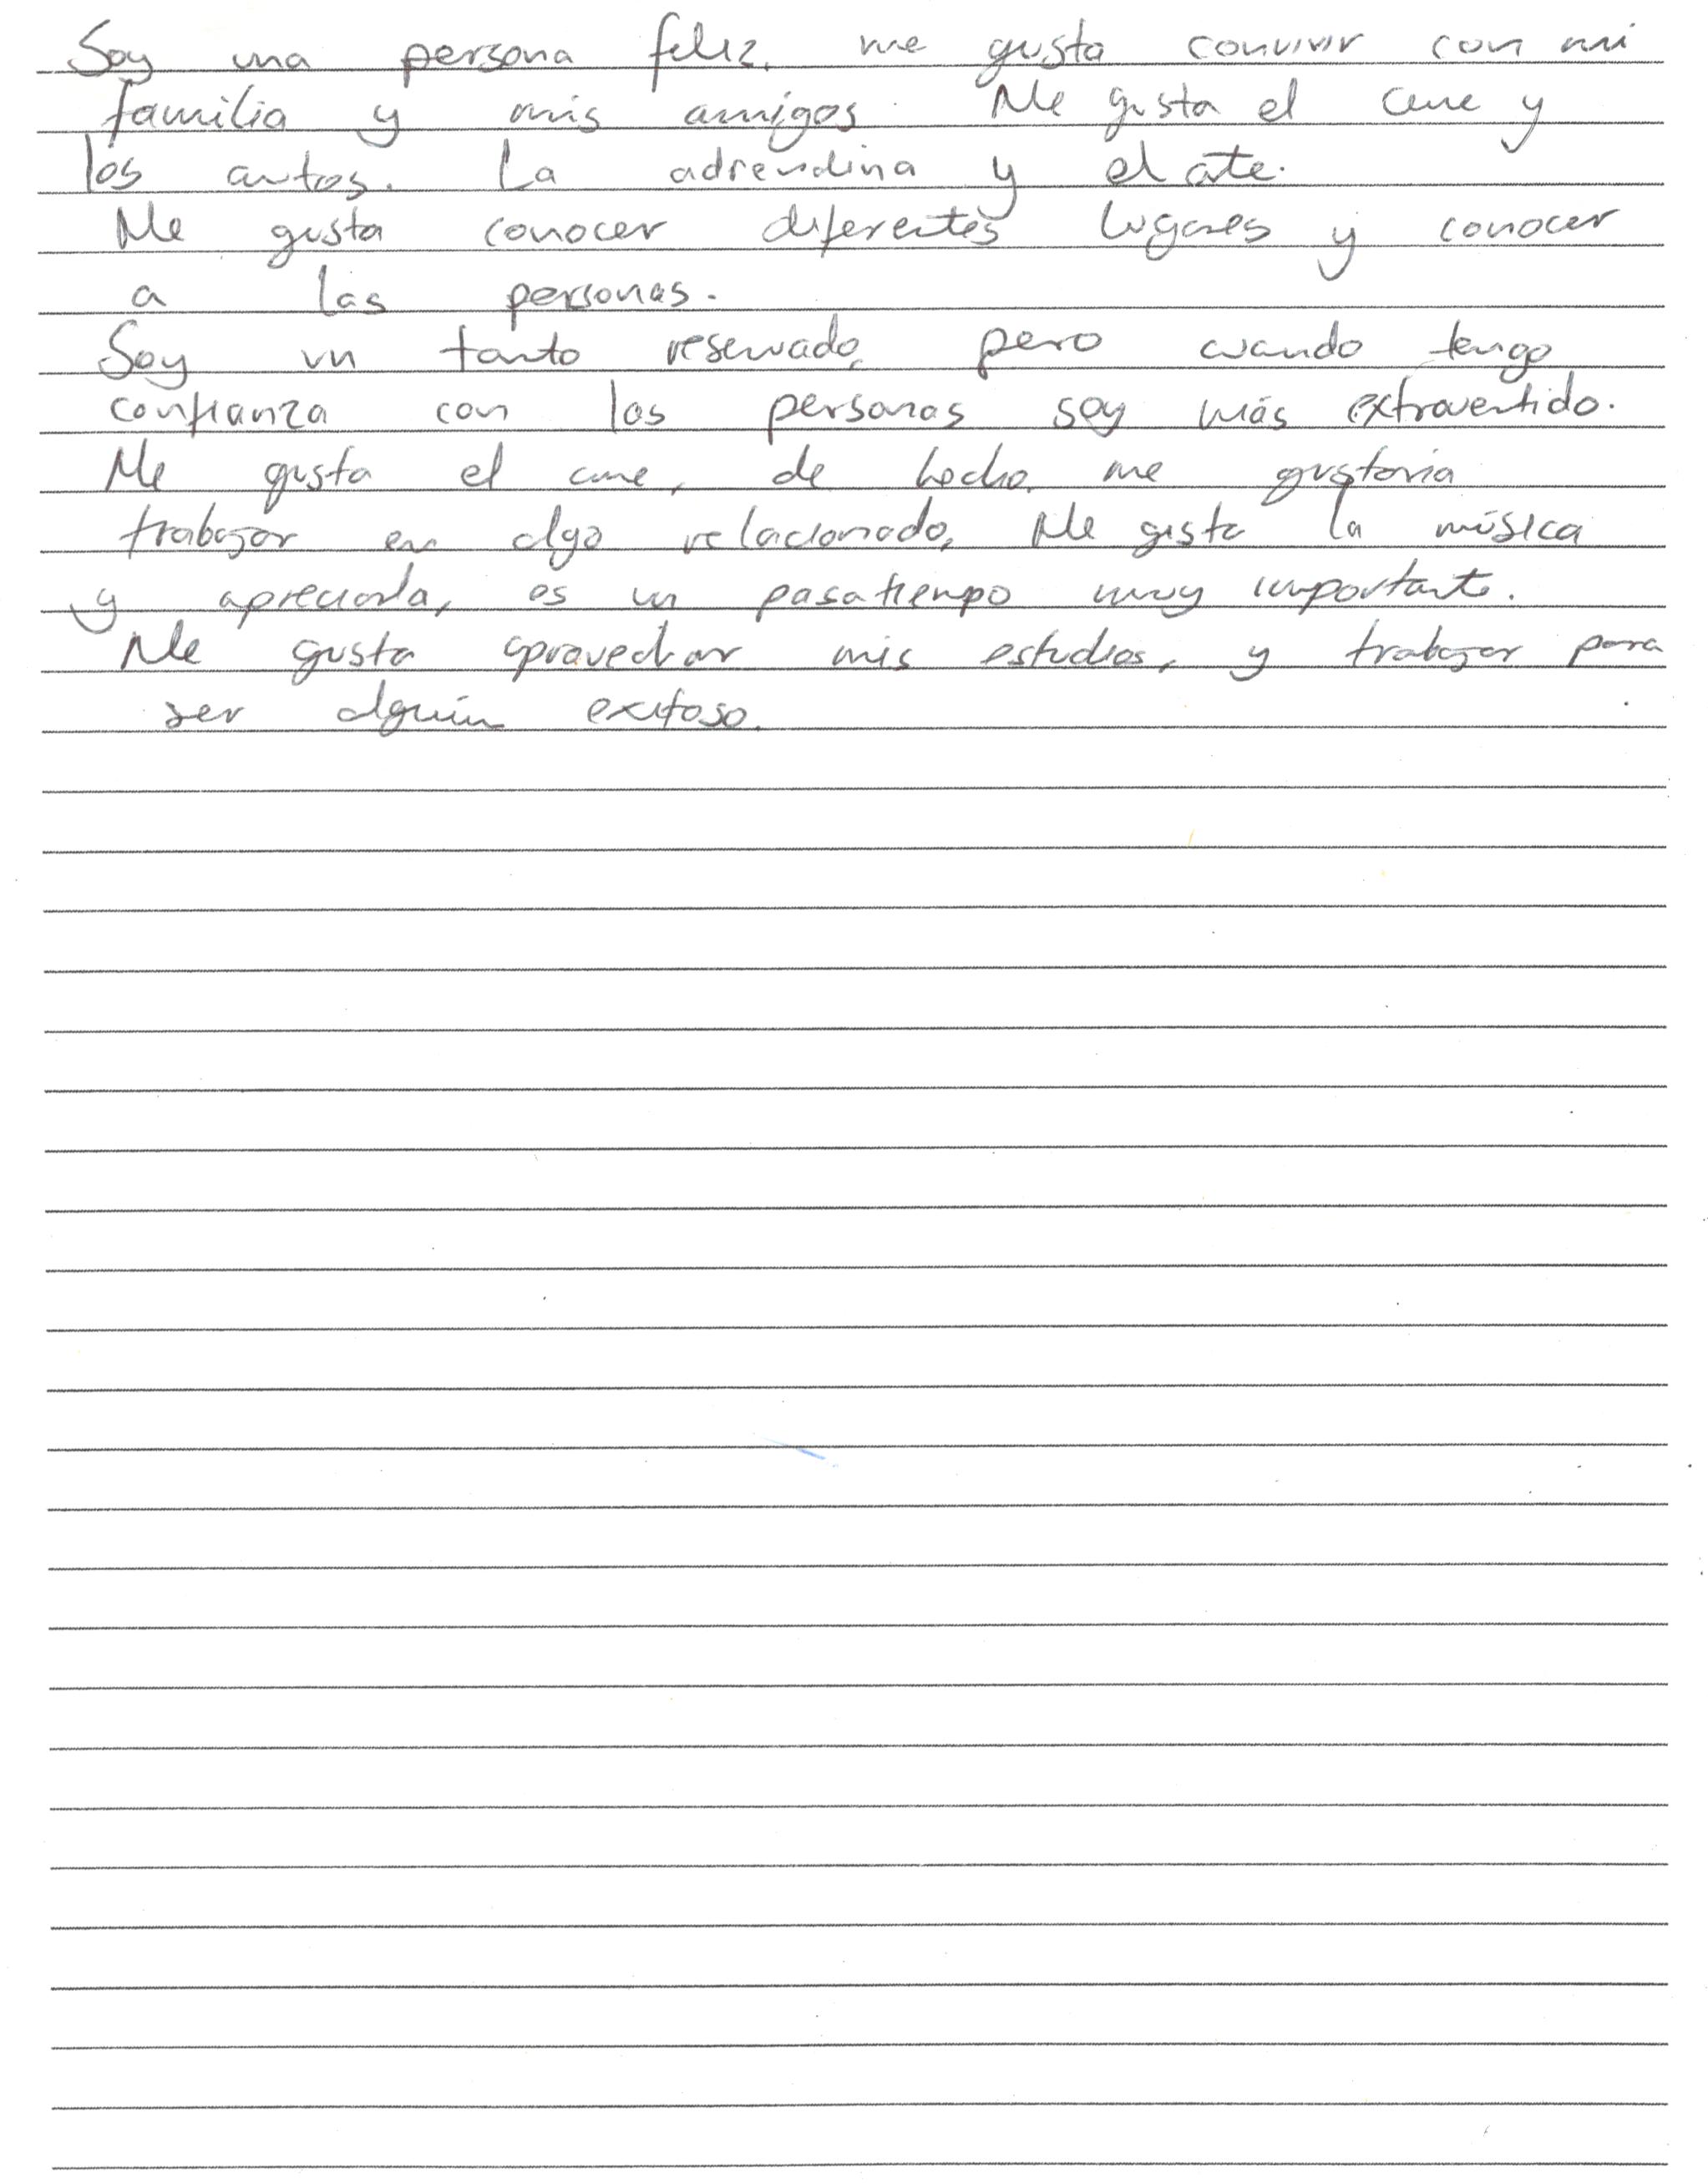 Soy una persona feliz, me gusta convivir con mi
familia y mis amigos. Me gusta el cine y
los autos. La adrenalina y el arte.
Me gusta conocer diferentes lugares y conocer
a las personas.
Soy un tanto reservado, pero cuando tengo
confianza con las personas soy más extrovertido.
Me gusta el cine, de hecho, me gustaría
trabajar en algo relacionado. Me gusta la música
y apreciarla, es un pasatiempo muy importante.
Me gusta aprovechar mis estudios, y trabajar para
ser alguien exitoso.